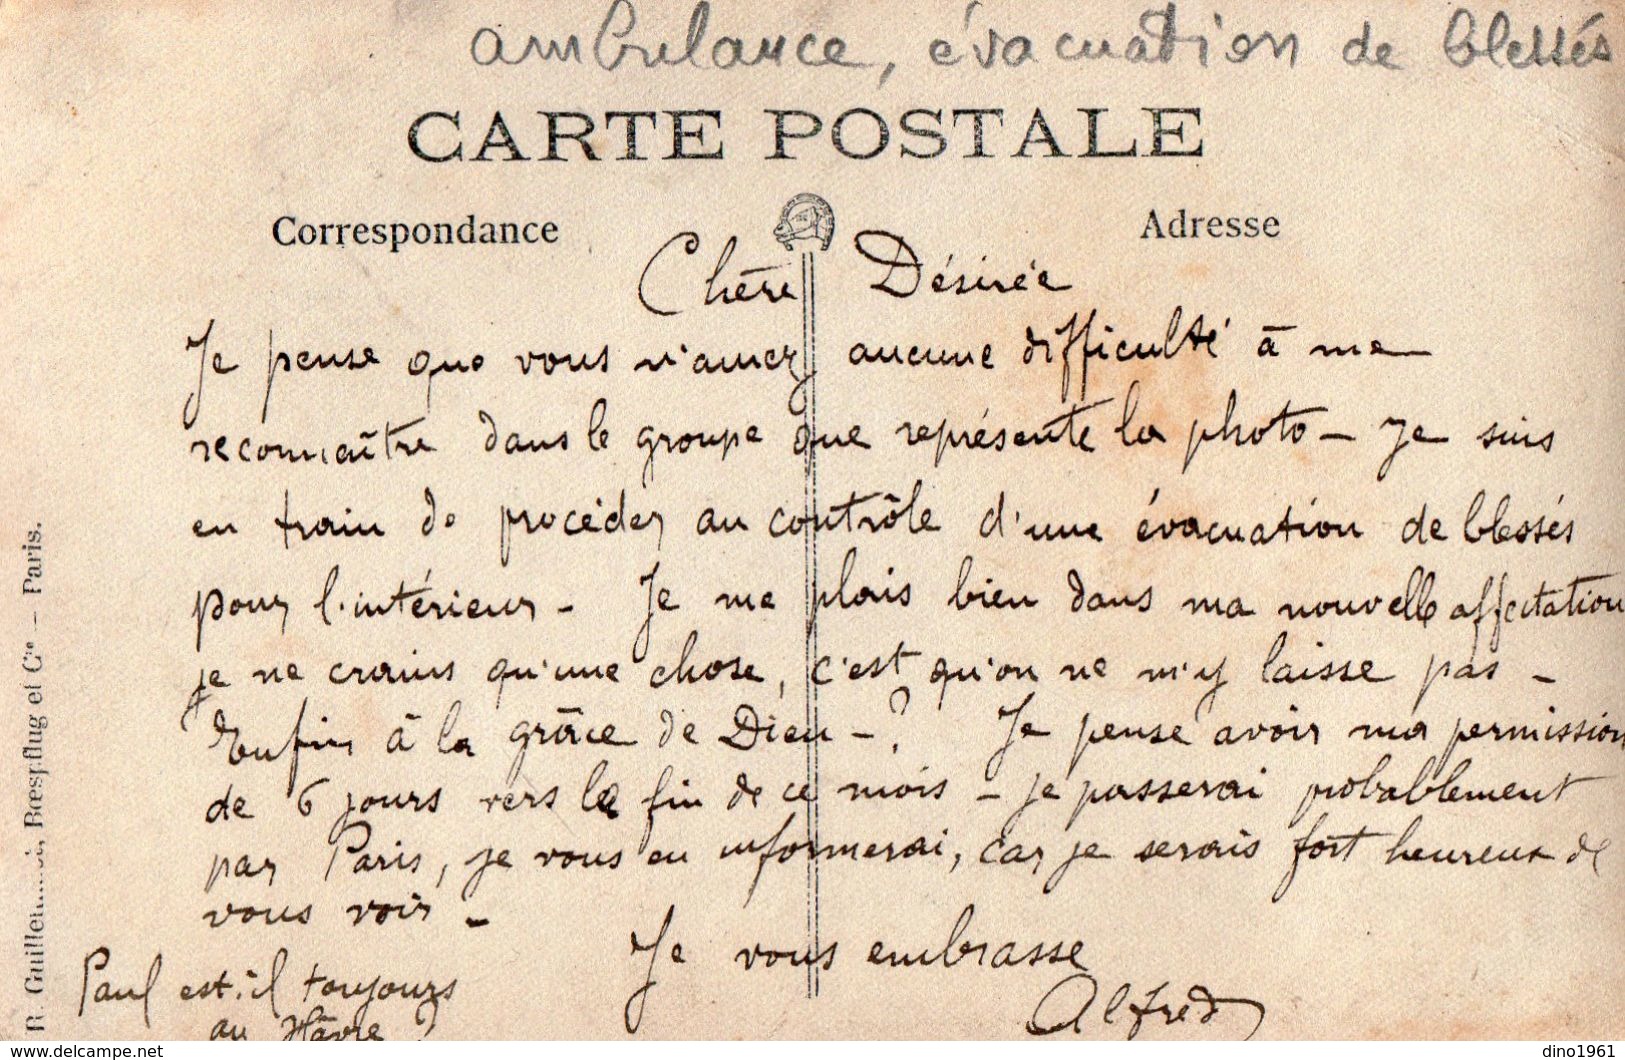 ambulance, évacuation de blessés
CARTE POSTALE
Correspondance
Adresse
Chère Désirée
Je pense que vous n'aurez aucune difficulté à me
reconnaître dans le groupe que représente la photo - Je suis
en train de procéder au contrôle d'une évacuation de blessés
pour l'intérieur - Je me plais bien dans ma nouvelle affectation
je ne crains qu'une chose, c'est qu'on ne m'y laisse pas -
Enfin à la grâce de Dieu - ? Je pense avoir ma permission
de 6 jours vers la fin de ce mois - je passerai probablement
par Paris, je vous en informerai, car je serais fort heureux de
vous voir -
Je vous embrasse
Alfred
Paul est-il toujours
au Hâvre ?
R. Guillem Bœspflug et Cie - Paris.
www.delcampe.net
dino1961